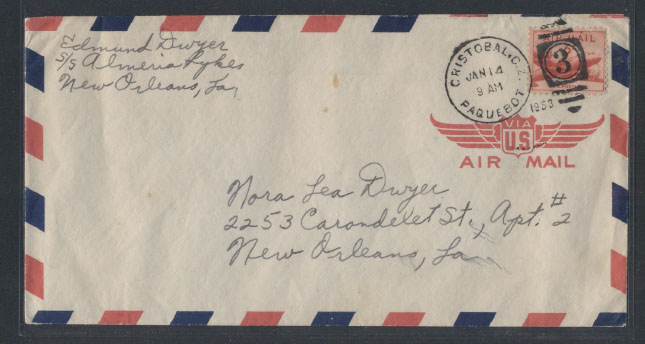 Edmund Dwyer
S/S Almeria Lykes
New Orleans, La,
CRISTOBAL, C.Z.
JAN 14
9 AM
PAQUEBOT
1953
3
AIR MAIL
VIA
U.S.
AIR MAIL
Nora Lea Dwyer
2253 Carondelet St., Apt. #2
New Orleans, La